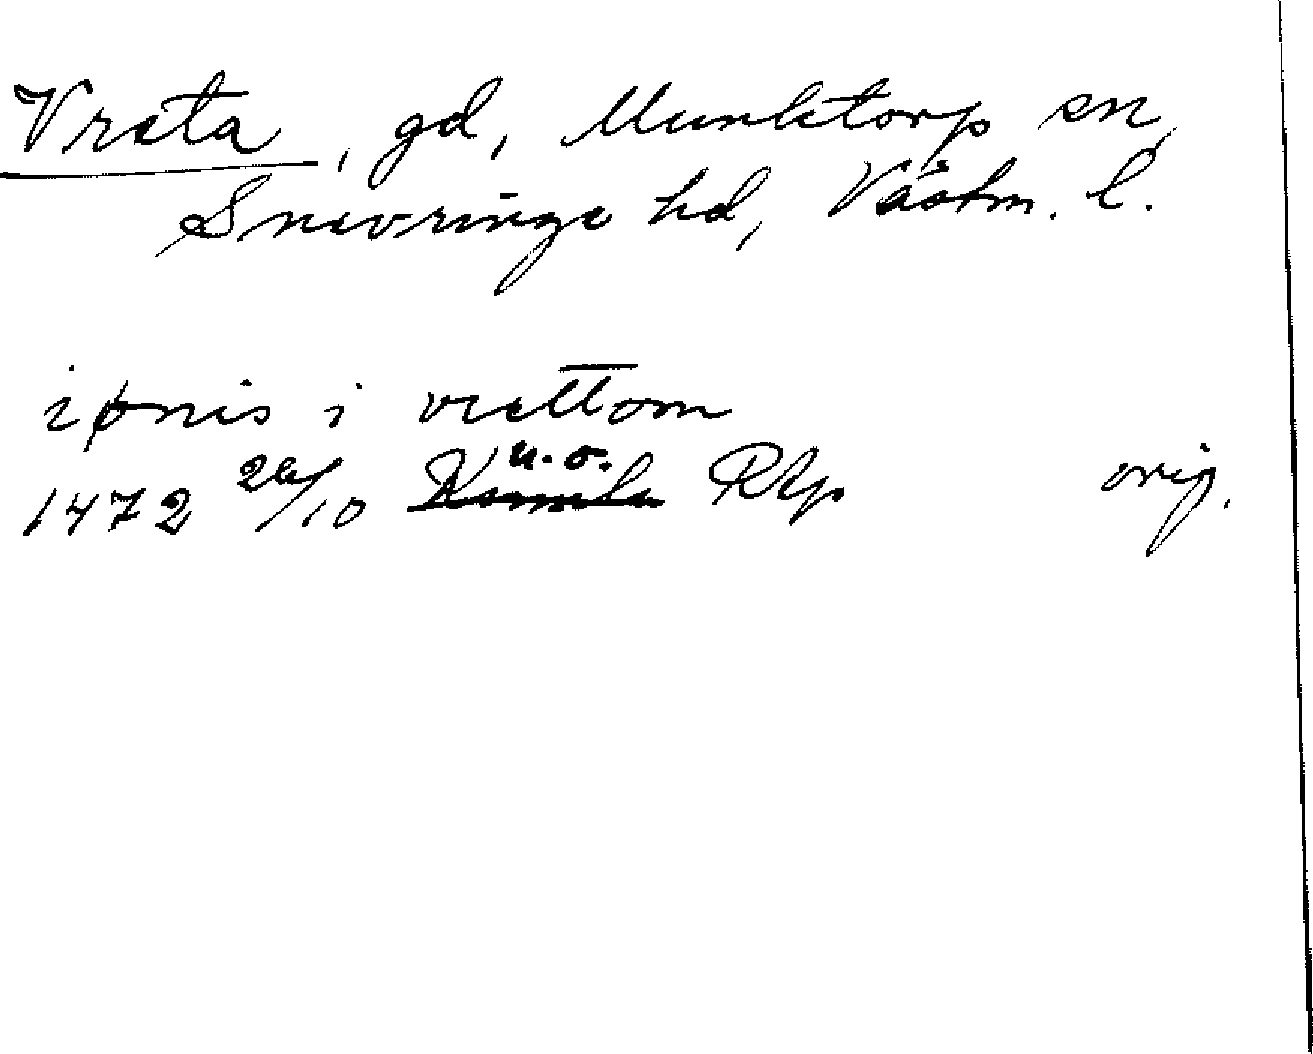 Vreta, gd, Munktorp sn,
Snevringe hd, Västm. l.
iønis i vrettom
1472 26/10 u.o. Kumla Rp orig.